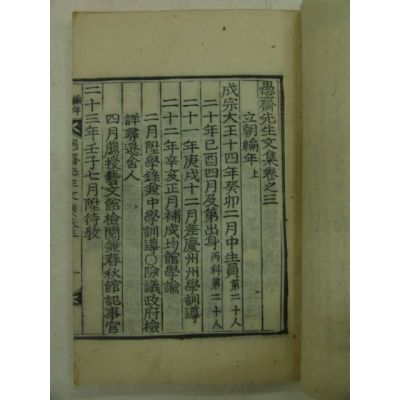 愚齋先生文集卷之三
立朝編年 上
成宗大王十四年癸卯二月中生員 第二十人
二十年己酉四月及第出身 丙科第二十人
二十一年庚戌十二月差慶州州學訓導
二十二年辛亥正月補成均館學諭
二月陞學錄兼中學訓導○除議政府檢
詳尋遷舍人
四月薦授藝文館檢閱兼春秋館記事官
二十三年壬子七月陞待敎
編年
愚齋先生文集卷三
一